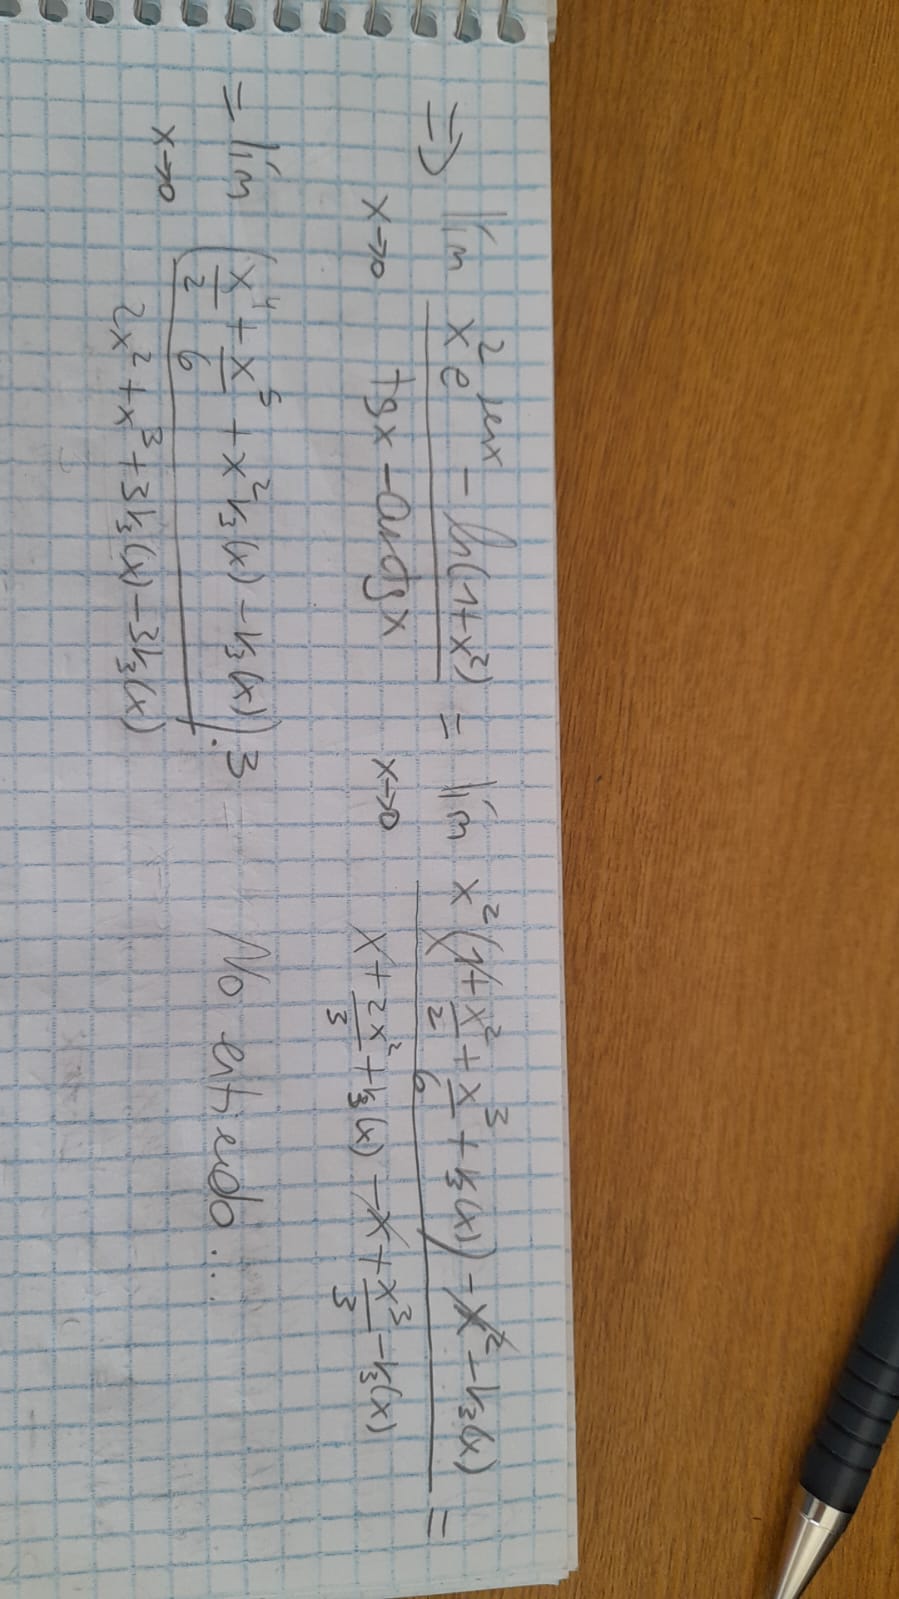 => lím x→0 (x² e^(senx) - ln(1+x²)) / (tgx - arctgx) = lím x→0 (x²(1+x²/2+x³/6+r₃(x)) - x² - r₃(x)) / (x + 2x²/3 + r₃(x) - x + x³/3 - r₃(x)) =
= lím x→0 (x⁴/2 + x⁵/6 + x²r₃(x) - r₃(x))·3 / (2x² + x³ + 3r₃(x) - 3r₃(x)) No entiendo...